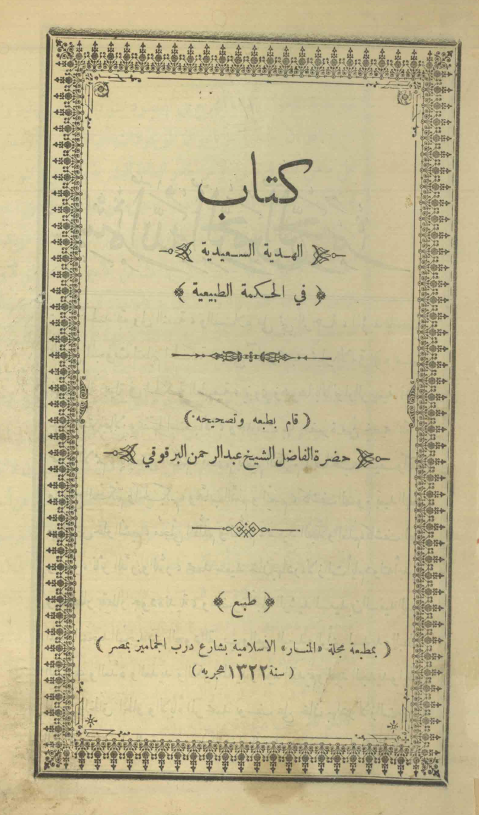 كتاب
الهدية السعيدية
﴿ في الحكمة الطبيعية ﴾
( قام بطبعه وتصحيحه )
حضرة الفاضل الشيخ عبد الرحمن البرقوقي
﴿ طبع ﴾
( بمطبعة مجلة «المنار» الاسلامية بشارع درب الجماميز بمصر )
( سنة ١٣٢٢ هجريه )